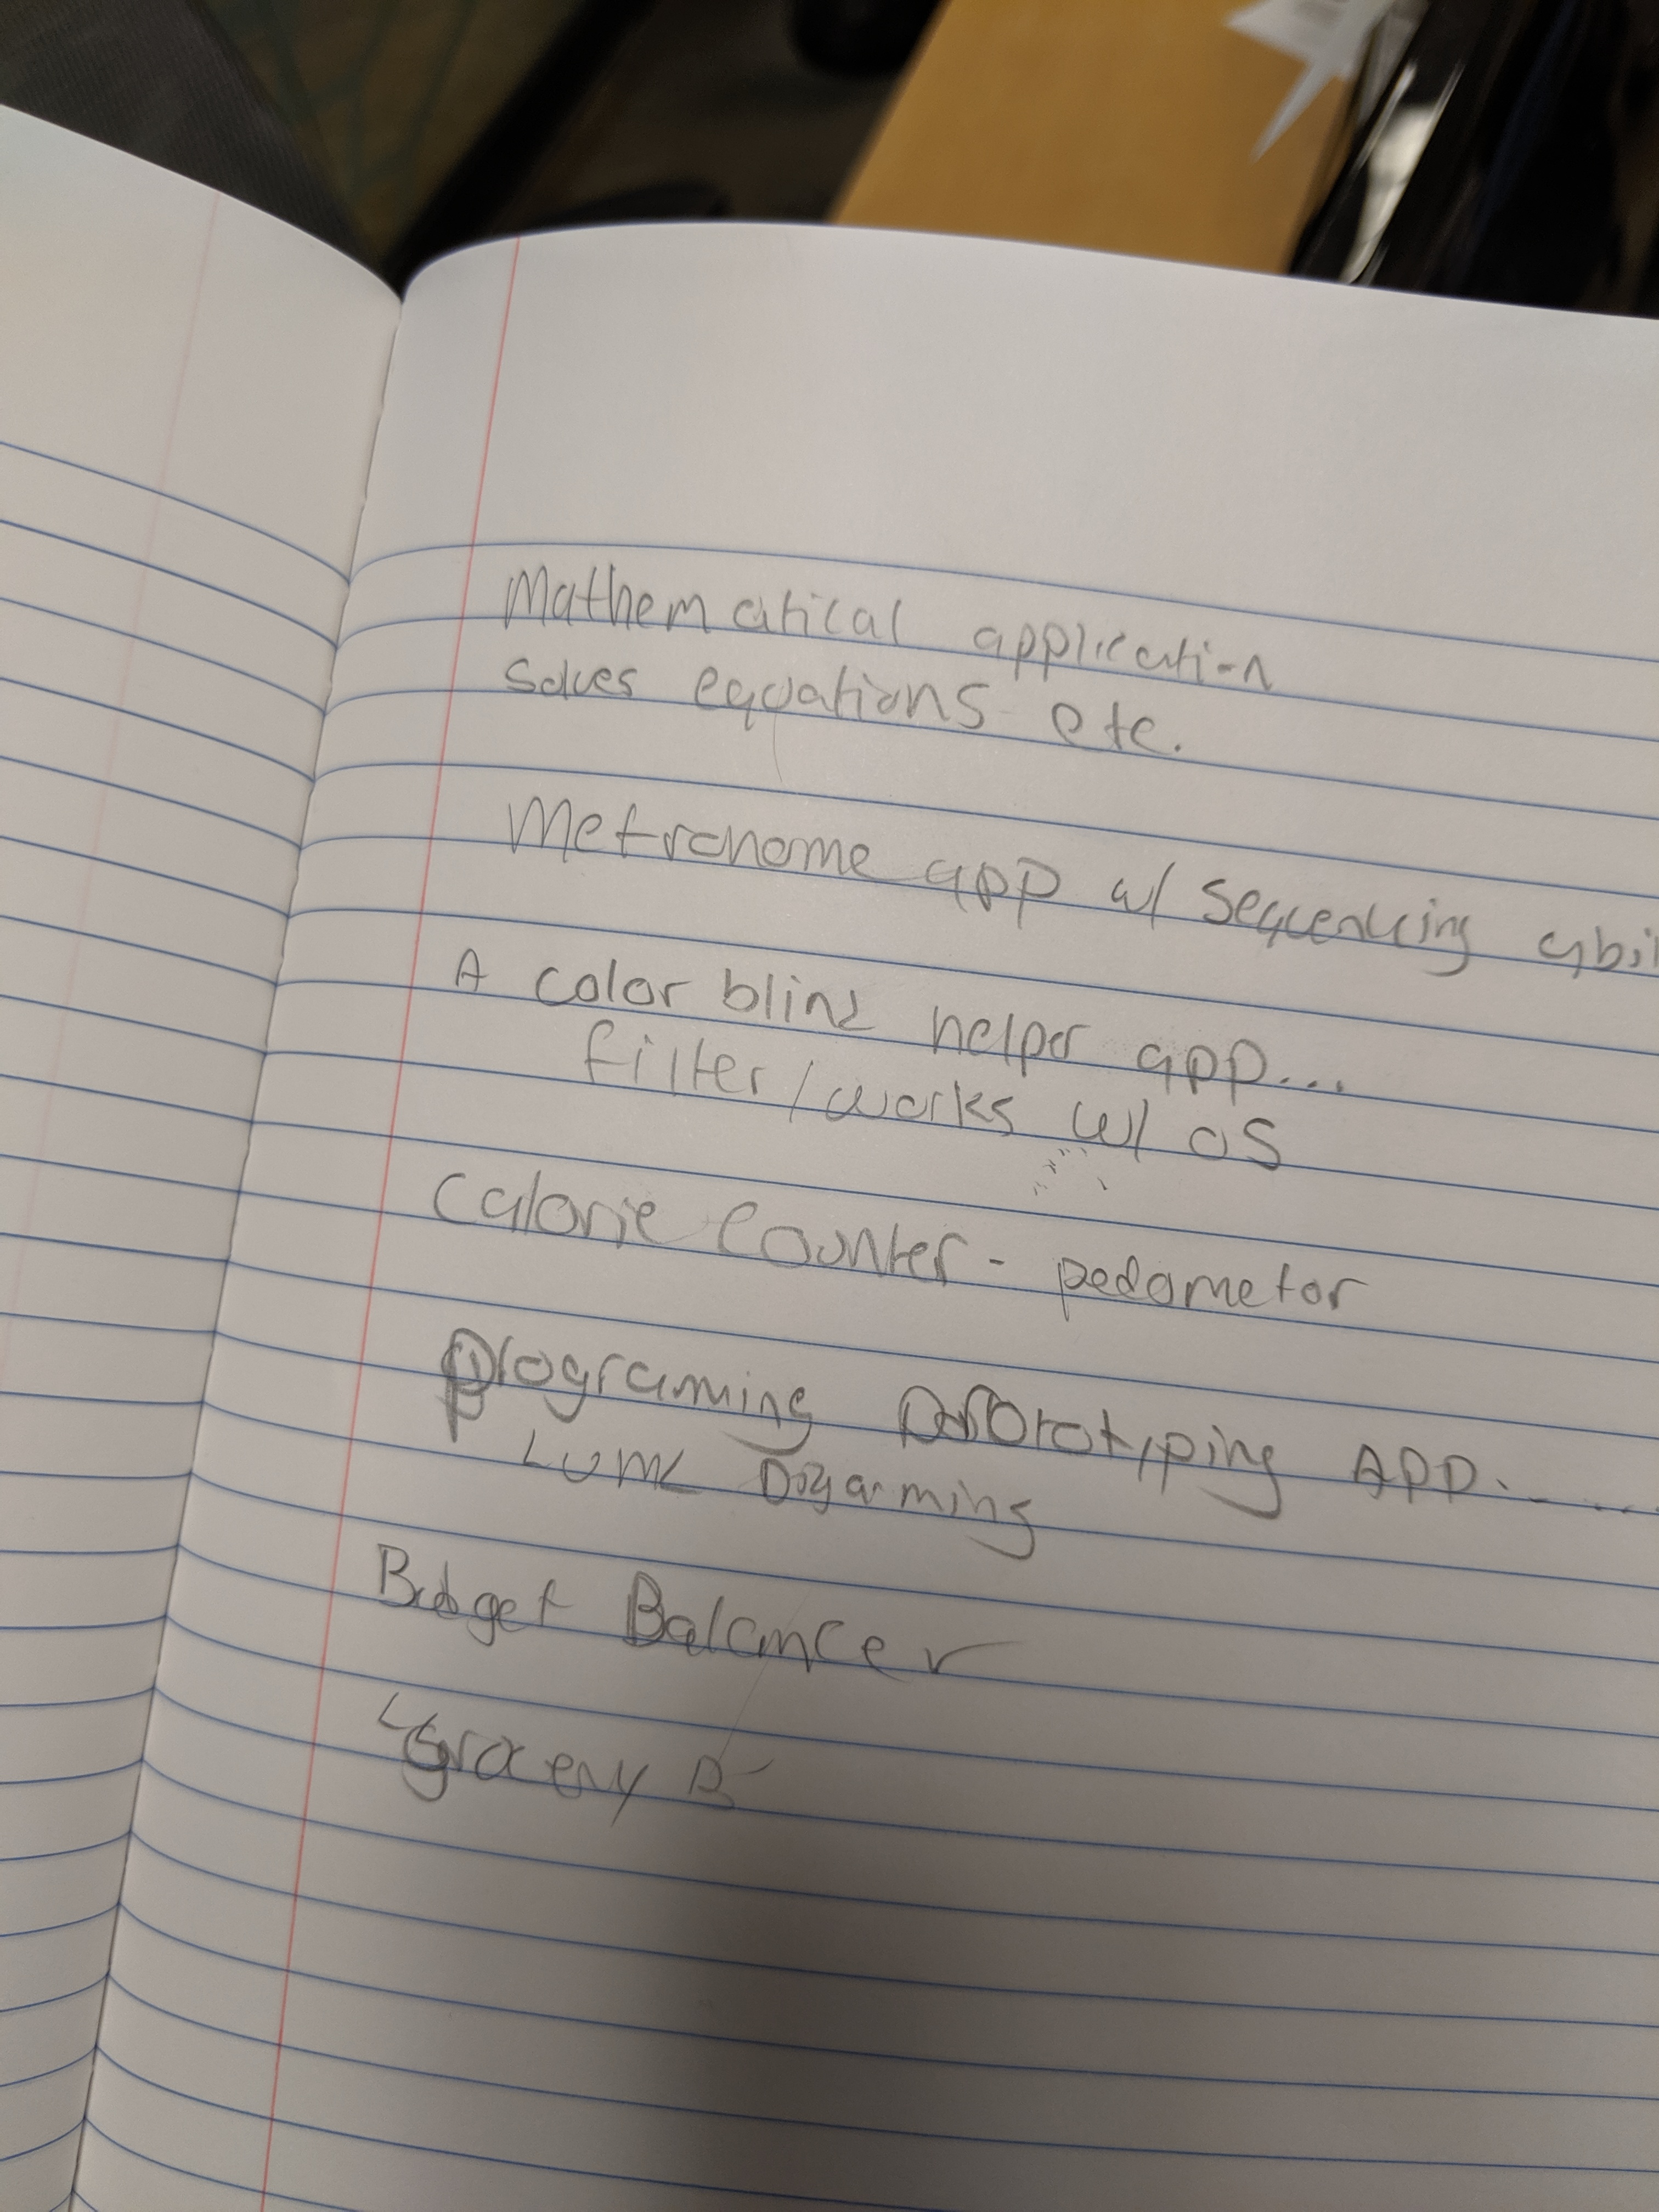 Mathematical application
solves equations etc.
Metronome app w/ sequencing abil
A color blind helper app...
filter/works w/ OS
Calorie Counter - pedometor
programing prototyping App.....
Budget Balancer
Grocery B